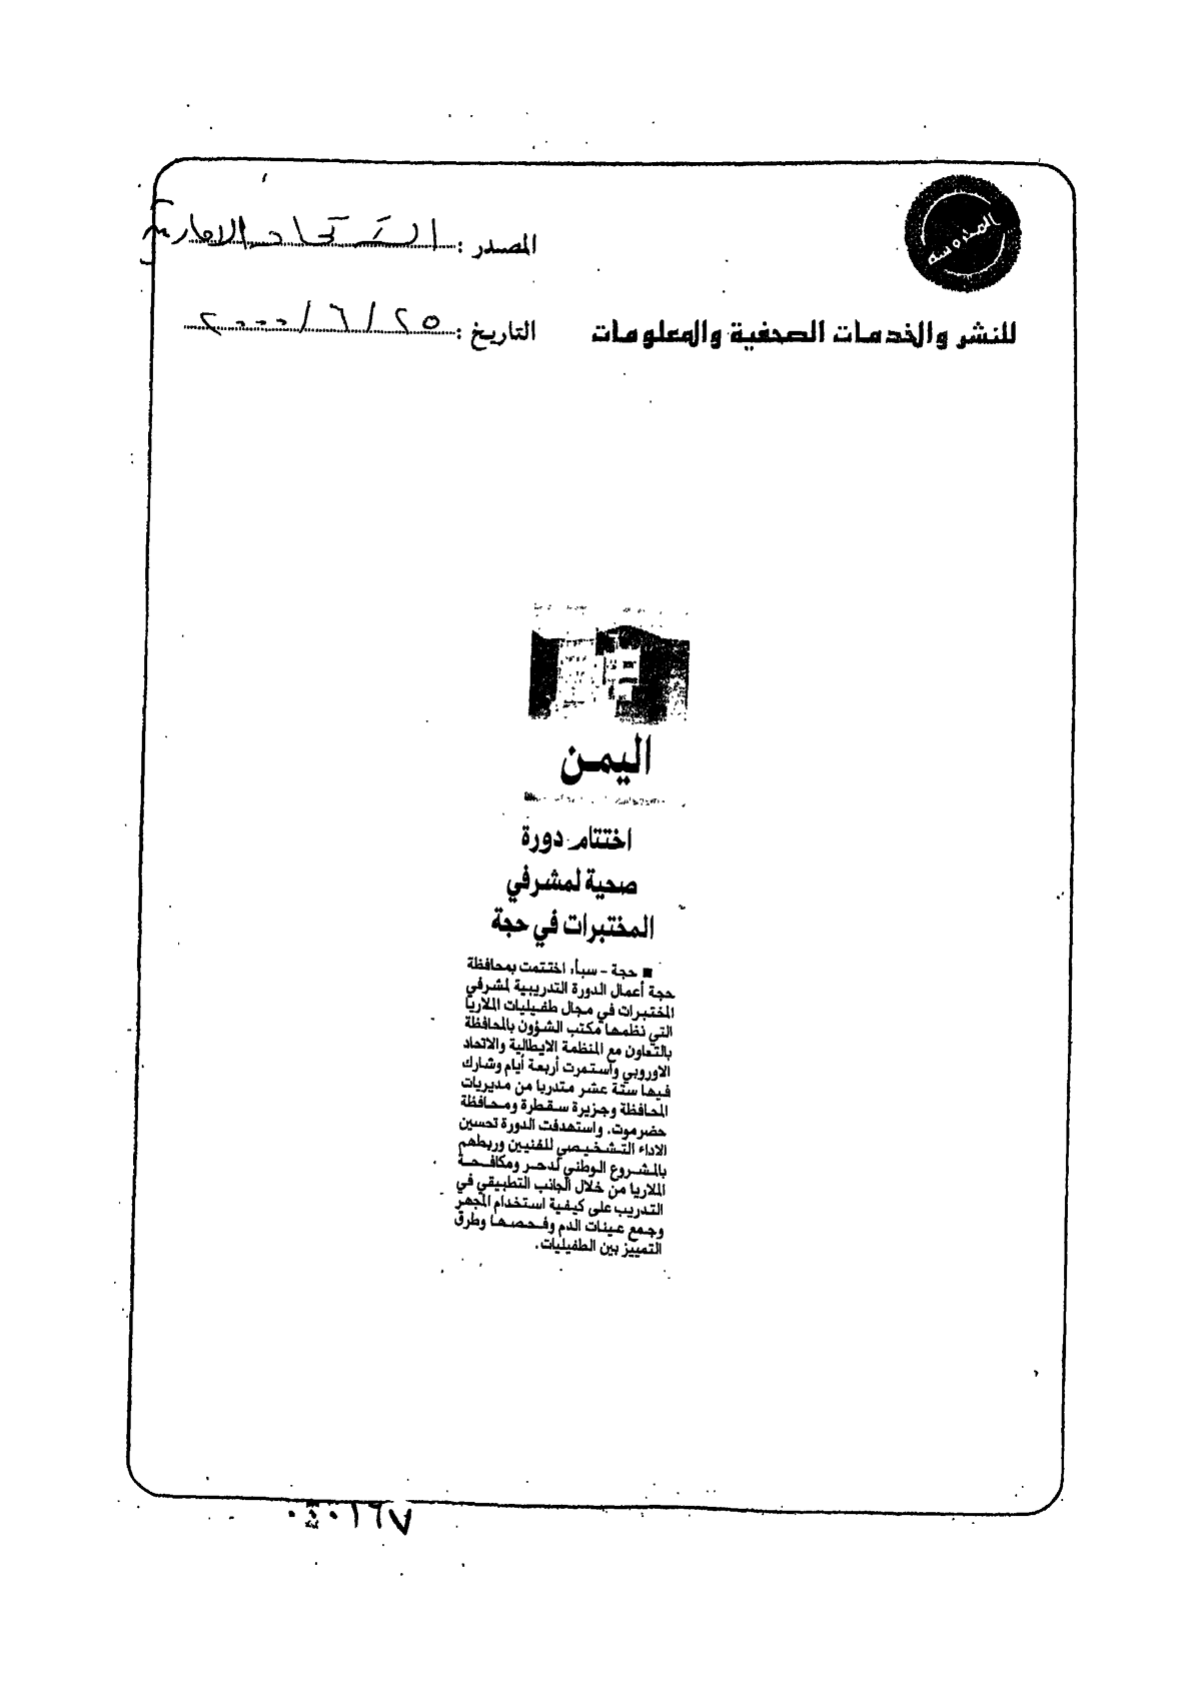 المحروسة
المصدر : الاتحاد الاماراتية
للنشر والخدمات الصحفية والمعلومات
التاريخ : ٢٥ / ٦ / ٢٠٠٠
اليمن
اختتام دورة
صحية لمشرفي
المختبرات في حجة
■ حجة - سبأ: اختتمت بمحافظة
حجة أعمال الدورة التدريبية لمشرفي
المختبرات في مجال طفيليات الملاريا
التي نظمها مكتب الشؤون بالمحافظة
بالتعاون مع المنظمة الايطالية والاتحاد
الاوروبي واستمرت أربعة أيام وشارك
فيها ستة عشر متدربا من مديريات
المحافظة وجزيرة سقطرة ومحافظة
حضرموت. واستهدفت الدورة تحسين
الاداء التشخيصي للفنيين وربطهم
بالمشروع الوطني لدحر ومكافحة
الملاريا من خلال الجانب التطبيقي في
التدريب على كيفية استخدام المجهر
وجمع عينات الدم وفحصها وطرق
التمييز بين الطفيليات.